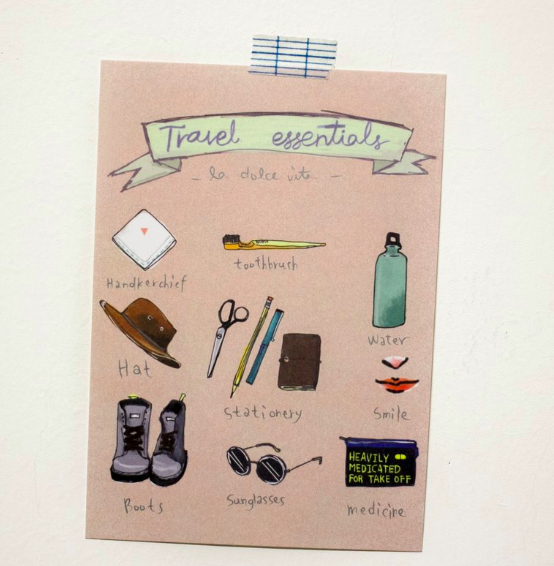 Travel essentials
- la dolce vita -
Handkerchief
toothbrush
Water
Hat
Stationery
Smile
HEAVILY
MEDICATED
FOR TAKE OFF
Boots
Sunglasses
medicine